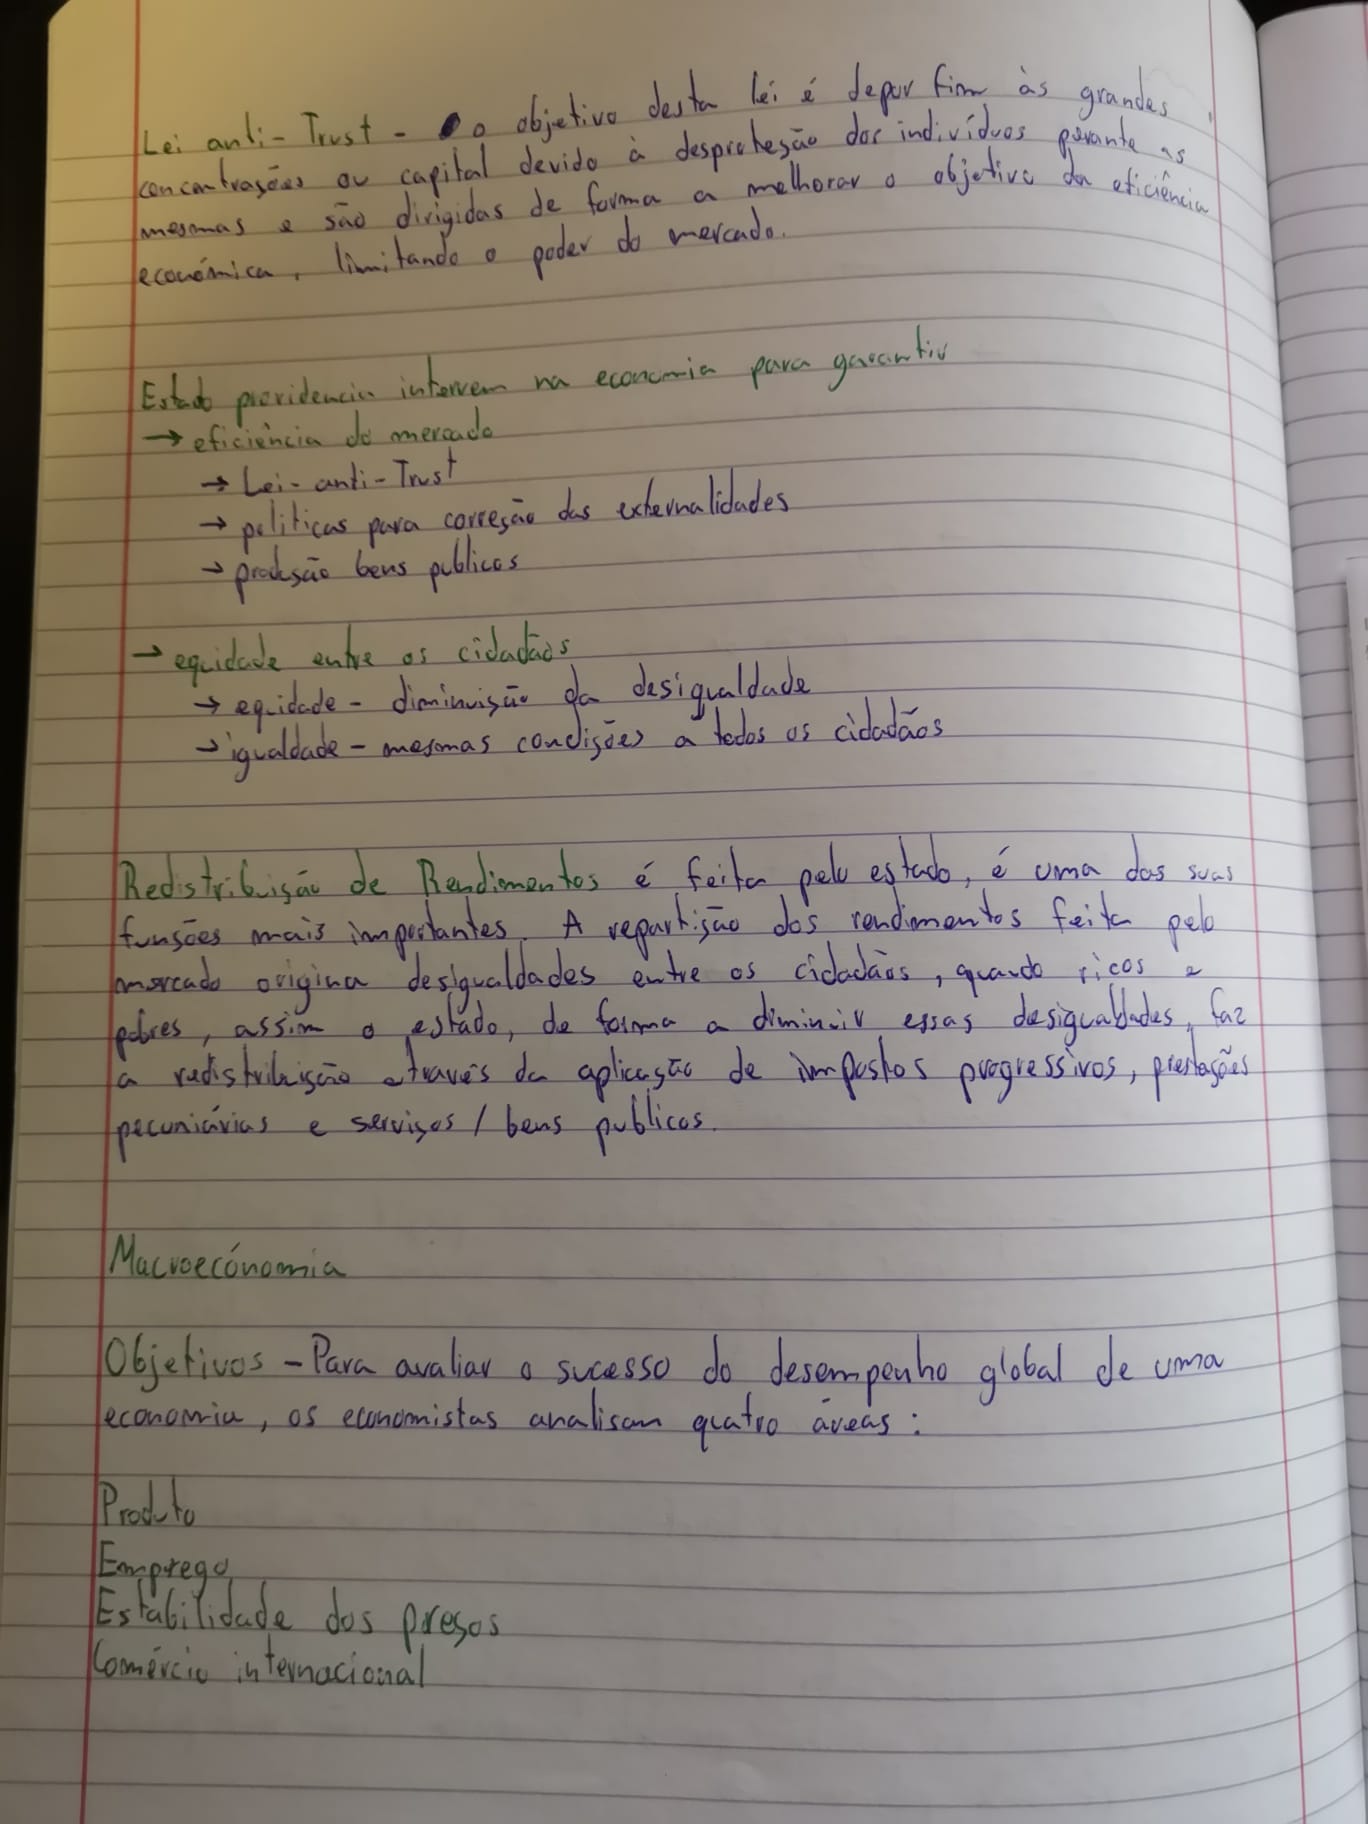 Lei anti-Trust - o objetivo desta lei é depor fim às grandes
concentrações ou capital devido à desproteção dos indivíduos perante as
mesmas e são dirigidas de forma a melhorar o objetivo da eficiência
económica, limitando o poder do mercado.
Estado providencia intervem na economia para garantir
→ eficiência do mercado
→ Lei-anti-Trust
→ politicas para correção das externalidades
→ produção bens publicos
→ equidade entre os cidadãos
→ equidade - diminuição da desigualdade
→ igualdade - mesmas condições a todos os cidadãos
Redistribuição de Rendimentos é feita pelo estado, é uma das suas
funções mais importantes. A repartição dos rendimentos feita pelo
mercado origina desigualdades entre os cidadãos, quando ricos e
pobres, assim o estado, de forma a diminuir essas desigualdades, faz
a redistribuição através da aplicação de impostos progressivos, prestações
pecuniárias e serviços / bens publicos.
Macroecónomia
Objetivos - Para avaliar o sucesso do desempenho global de uma
economia, os economistas analisam quatro áreas:
Produto
Emprego
Estabilidade dos preços
Comércio internacional